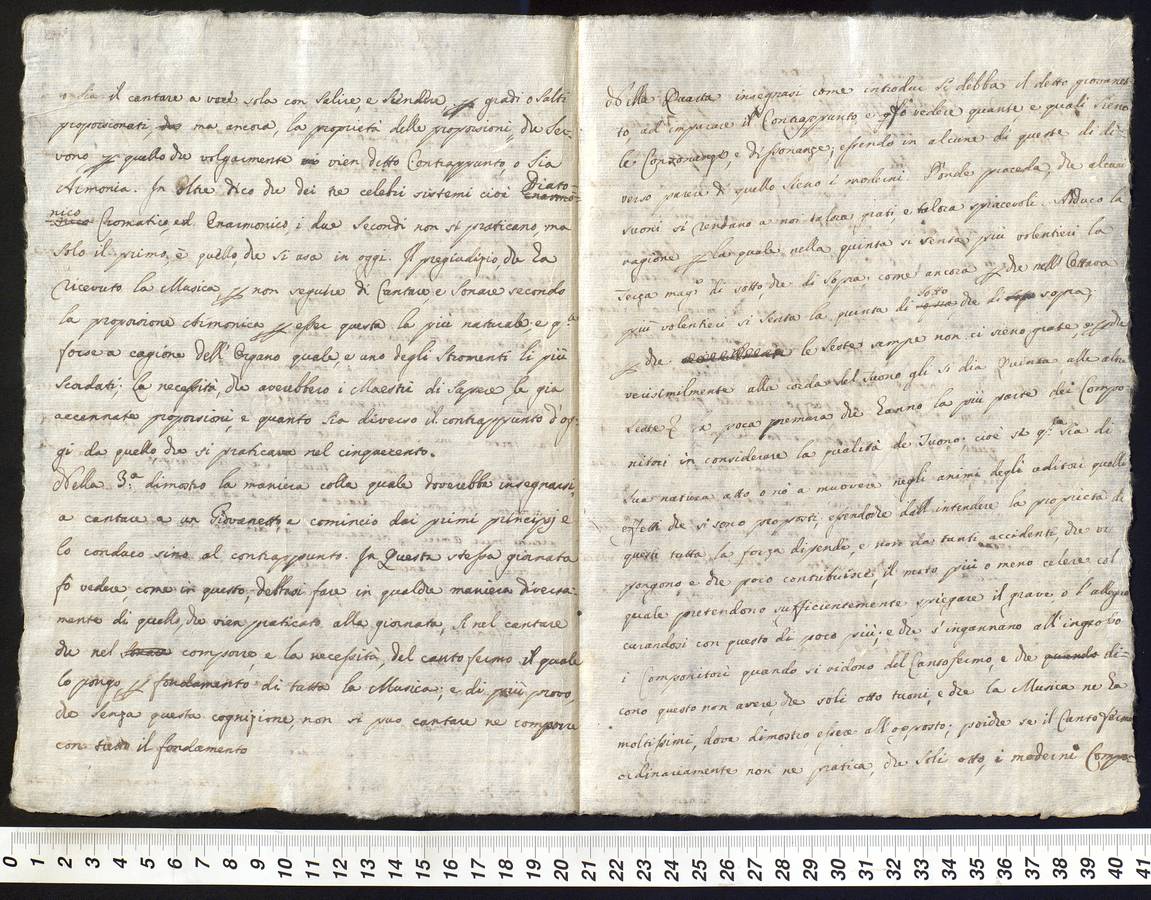 o sia il cantare a voce sola con salire e scendere p gradi o salti
proporzionati, ma ancora, la proprietà delle proporzioni, che ser-
vono p quello che volgarmente vien detto Contrappunto o sia
Armonia. In oltre dico che dei tre celebri sistemi cioè Diato-
nico Cromatico, ed Enarmonico, i due secondi non si praticano, ma
solo il primo, è quello, che si usa in oggi. Il pregiudizio, che ha
ricevuto la Musica p non seguire di Cantare, e sonare secondo
la proporzione Armonica p esser questa la più naturale e
forse a cagione dell'Organo quale, e uno degli stromenti li più
scordati; la necessità, che averebbero i Maestri di sapere le già
accennate proporzioni, e quanto sia diverso il contrappunto d'og-
gi da quello, che si praticava nel cinquecento.
Nella 3.a dimostro la maniera colla quale doverebbe insegnarsi
a cantare a un Giovanetto e comincio dai primi principj e
lo conduco sino al contrappunto. In Questa stessa giornata
fò vedere come in questo, debbasi fare in qualche maniera diversa-
mente di quello, che vien praticato alla giornata, sì nel cantare
che nel sonare comporre, e la necessità, del canto fermo il quale
lo pongo p fondamento di tutta la Musica; e di più provo,
che senza questa cognizione non si può cantare ne comporre
con tutto il fondamento
Nella Quarta insegnasi come introdur si debba il detto giovanet-
to, ad imparare il Contrappunto e fò vedere quante, e quali sieno
le Consonanze e dissonanze; essendo in alcune di queste di di-
verso parere di quello sieno i moderni. D'onde proceda, che alcuni
suoni si rendano a noi talora grati e talora spiacevoli. Adduco la
ragione p la quale nella quinta si senta più volentieri la
terza mag.e di sotto, che di sopra, come ancora p che nell'Ottava
più volentieri si senta la quinta di sotto che di sopra;
p che le Seste sempre non ci sieno grate, e p che
verisimilmente alla corda del suono gli si dia Quinta alle altre
seste la poca premura che hanno la più parte dei Compo-
nitori in considerare la qualità de Tuono; cioè se q.sta sia di
sua natura atto o nò a muovere negli animi degli uditori quelli
effetti che si sono proposti essendoche dall'intendere la proprietà di
questi tutta la forza dipende, e non da tanti accidenti, che vi
pongono, e che poco contribuisce il moto più o meno celere col
quale pretendono sufficientemente spiegare il grave o l'allegro
curandosi con questo di poco più; e che s'ingannano all'ingrosso
i Componitori quando si ridono del Canto fermo, e che quando di-
cono questo non avere, che soli otto tuoni, e che la Musica ne ha
moltissimi, dove dimostro essere all'opposto; poiche se il Canto fermo
ordinariamente non ne pratica, che soli otto, i moderni Compo-
0 1 2 3 4 5 6 7 8 9 10 11 12 13 14 15 16 17 18 19 20 21 22 23 24 25 26 27 28 29 30 31 32 33 34 35 36 37 38 39 40 41